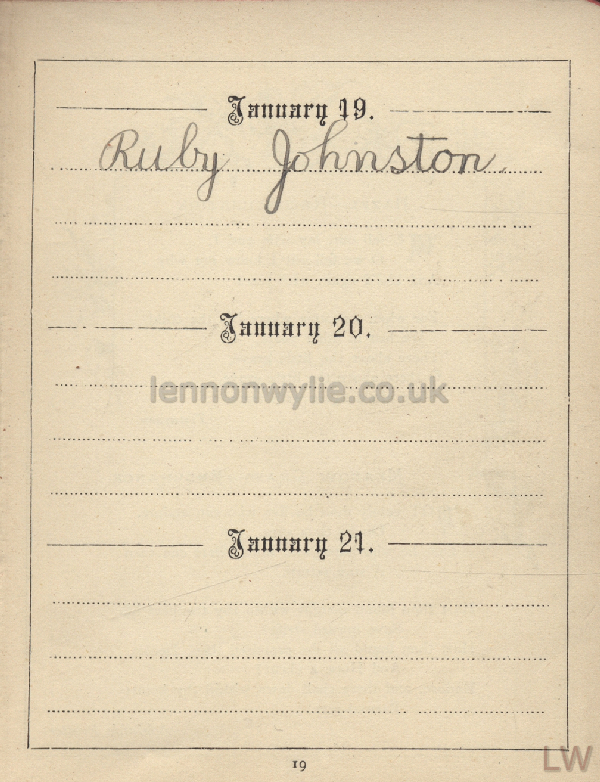 January 19.
Ruby Johnston.
January 20.
lennonwylie.co.uk
January 21.
19
LW